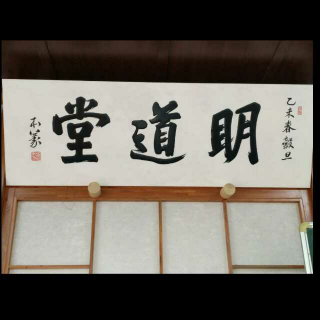 乙未春穀旦
明道堂